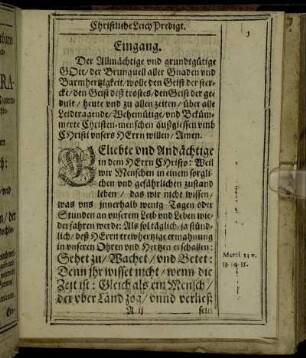 Christliche Leich Predigt.
3
Eingang.
Der Allmächtige vnd grundtgütige
GOtt/ der Brunquell aller Gnaden vnd
Barmhertzigkeit, wolle den Geist der ster-
cke/ den Geist deß trostes/ den Geist der ge
dult/ heute vnd zu allen zeiten/ über alle
Leidtragende/ Wehemütige/ vnd Beküm-
merte Christen-menschen außgiessen vmb
Christi vnsers HErrn willen/ Amen.
GEliebte vnd Andächtige
in dem HErrn Christo: Weil
wir Menschen in einem sorgli
chen vnd gefährlichen zustand
leben/ das wir nicht wissen/
was vns innerhalb wenig Tagen oder
Stunden an vnserem Leib vnd Leben wie-
derfahren werde: Als sol täglich/ ja stünd-
lich/ deß HErrn trewhertzige ermahnung
in vnseren Ohren vnd Hertzen erschallen:
Sehet zu/ Wachet/ vnd Betet:
Denn ihr wisset nicht/ wenn die
Zeit ist: Gleich als ein Mensch/
der vber Land zog/ vnnd verließ
Marci 13 v.
33. 34. 35.
A ij
sein